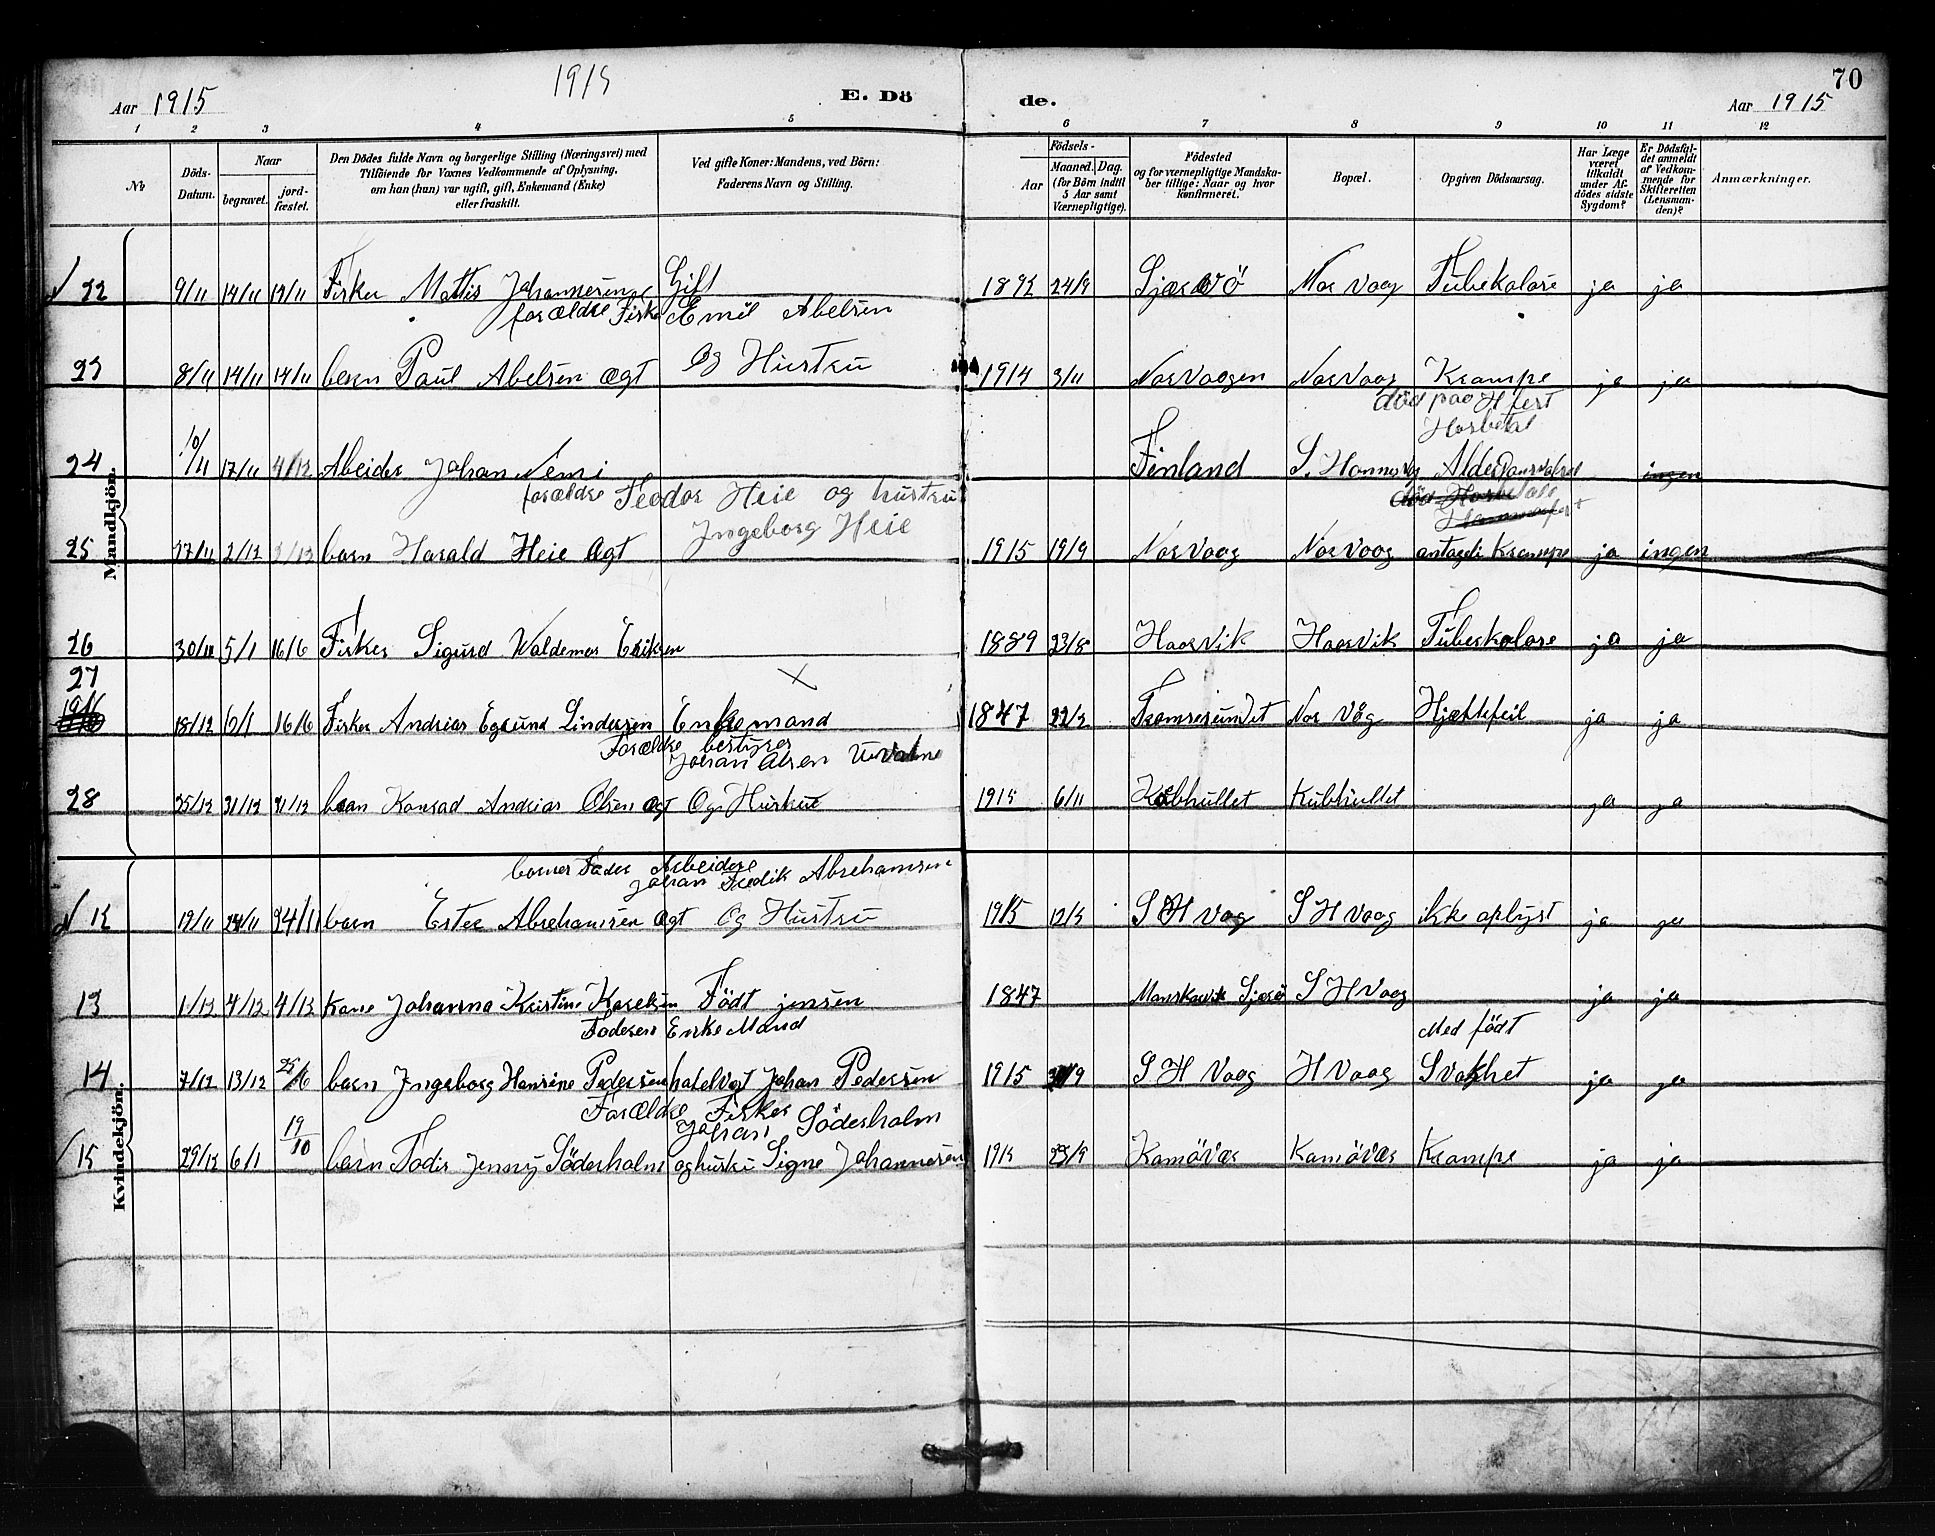 1915
70
Aar 1915
E. Dö
de.
Aar 1915
1 2 3 4 5 6 7 8 9 10 11 12
No
Döds-Datum.
Naar
begravet.
jord-fæstet.
Den Dödes fulde Navn og borgerlige Stilling (Næringsvei) med
Tilföiende for Voxnes Vedkommende af Oplysning,
om han (hun) var ugift, gift, Enkemand (Enke)
eller fraskilt.
Ved gifte Koner: Mandens, ved Börn:
Faderens Navn og Stilling.
Födsels-
Aar
Maaned. Dag.
(for Börn indtil
5 Aar samt
Værnepligtige).
Födested
og for værnepligtige Mandska-
ber tillige: Naar og hvor
konfirmeret.
Bopæl.
Opgiven Dödsaarsag.
Har Læge
været
tilkaldt
under Af-
dödes sidste
Sygdom?
Er Dödsfal-
det anmeldt
af Vedkom-
mende for
Skifteretten
(Lensman-
den)?
Anmærkninger.
Mandkjön.
22 9/11 14/11 14/11 Fisker Mattis Johannesen Gift 24/9 Nor Vaag Tubekolose ja ja
forældre Fisker Emil Abelsen
23 8/11 14/11 14/11 barn Paul Abelsen ægt og Hustru 1914 3/11 Nor Vaagen Nor Vaag Krampe ja ja
död paa
24 10/11 17/11 4/12 Abeider Johan Nemi Finland ingen
forældre Teodor Heie og hustru
Ingeborg Heie
25 27/11 2/12 barn Harald Heie ægt 1915 19/9 Nor Vaag Nor Vaag antagli Krampe ja ingen
26 30/11 5/1 16/6 Fisker Sigurd Waldemar Eriksen 1889 23/8 Haarvik Haarvik Tubeskolose ja ja
27
1916
18/12 6/1 16/6 Fisker Andreas Eglund Lindersen Enkemand 1847 Nor Våg Hjettefeil ja ja
Forældre bestyrer
Johan Olsen
28 25/12 31/12 31/12 barn Konrad Andreas Olsen ægt Og Hustru 1915 6/11 Kobhullet Kubhullet ja ja
barnes Fader Arbeider
Johan Fredik Abrehamsen
Kvindekjön.
12 19/11 24/11 24/11 barn Ester Abrehamsen ægt Og Hustru 1915 S H Vaag S H Vaag ikke oplyst ja ja
13 1/12 4/12 4/12 Kone Johanna Kristine Karelsen Födt jensen 1847 S H Vaag ja ja
Faderen Enke Mand
Med födt
14 7/12 13/12 barn Ingeborg Hansine Pedersen Johan Pedersen 1915 S H Vaag H Vaag Svakhet ja ja
Forældre Fisker
Johan Söderholm
15 29/12 6/1 19/10 barn Todis Jenny Söderholm og hustru Signe Johannesen 1915 23/9 Kamövær Kamövær Krampe ja ja